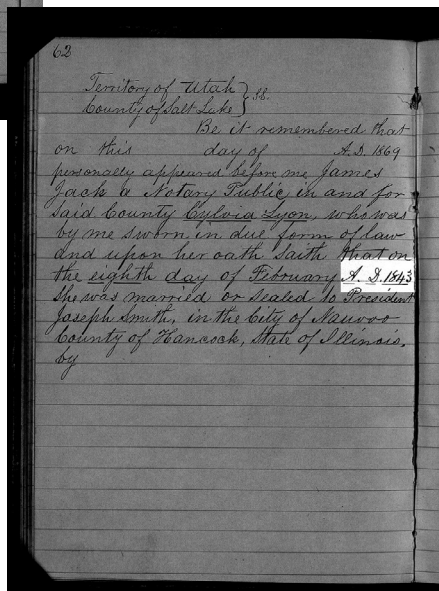 62
Territory of Utah } SS.
County of Salt Lake
Be it remembered that
on this day of A.D. 1869
personally appeared before me James
Jack a Notary Public in and for
said County Cylvia Lyon, who was
by me sworn in due form of law
and upon her oath saith that on
the eighth day of February A. D. 1843
she was married or sealed to President
Joseph Smith, in the City of Nauvoo
County of Hancock, State of Illinois.
by